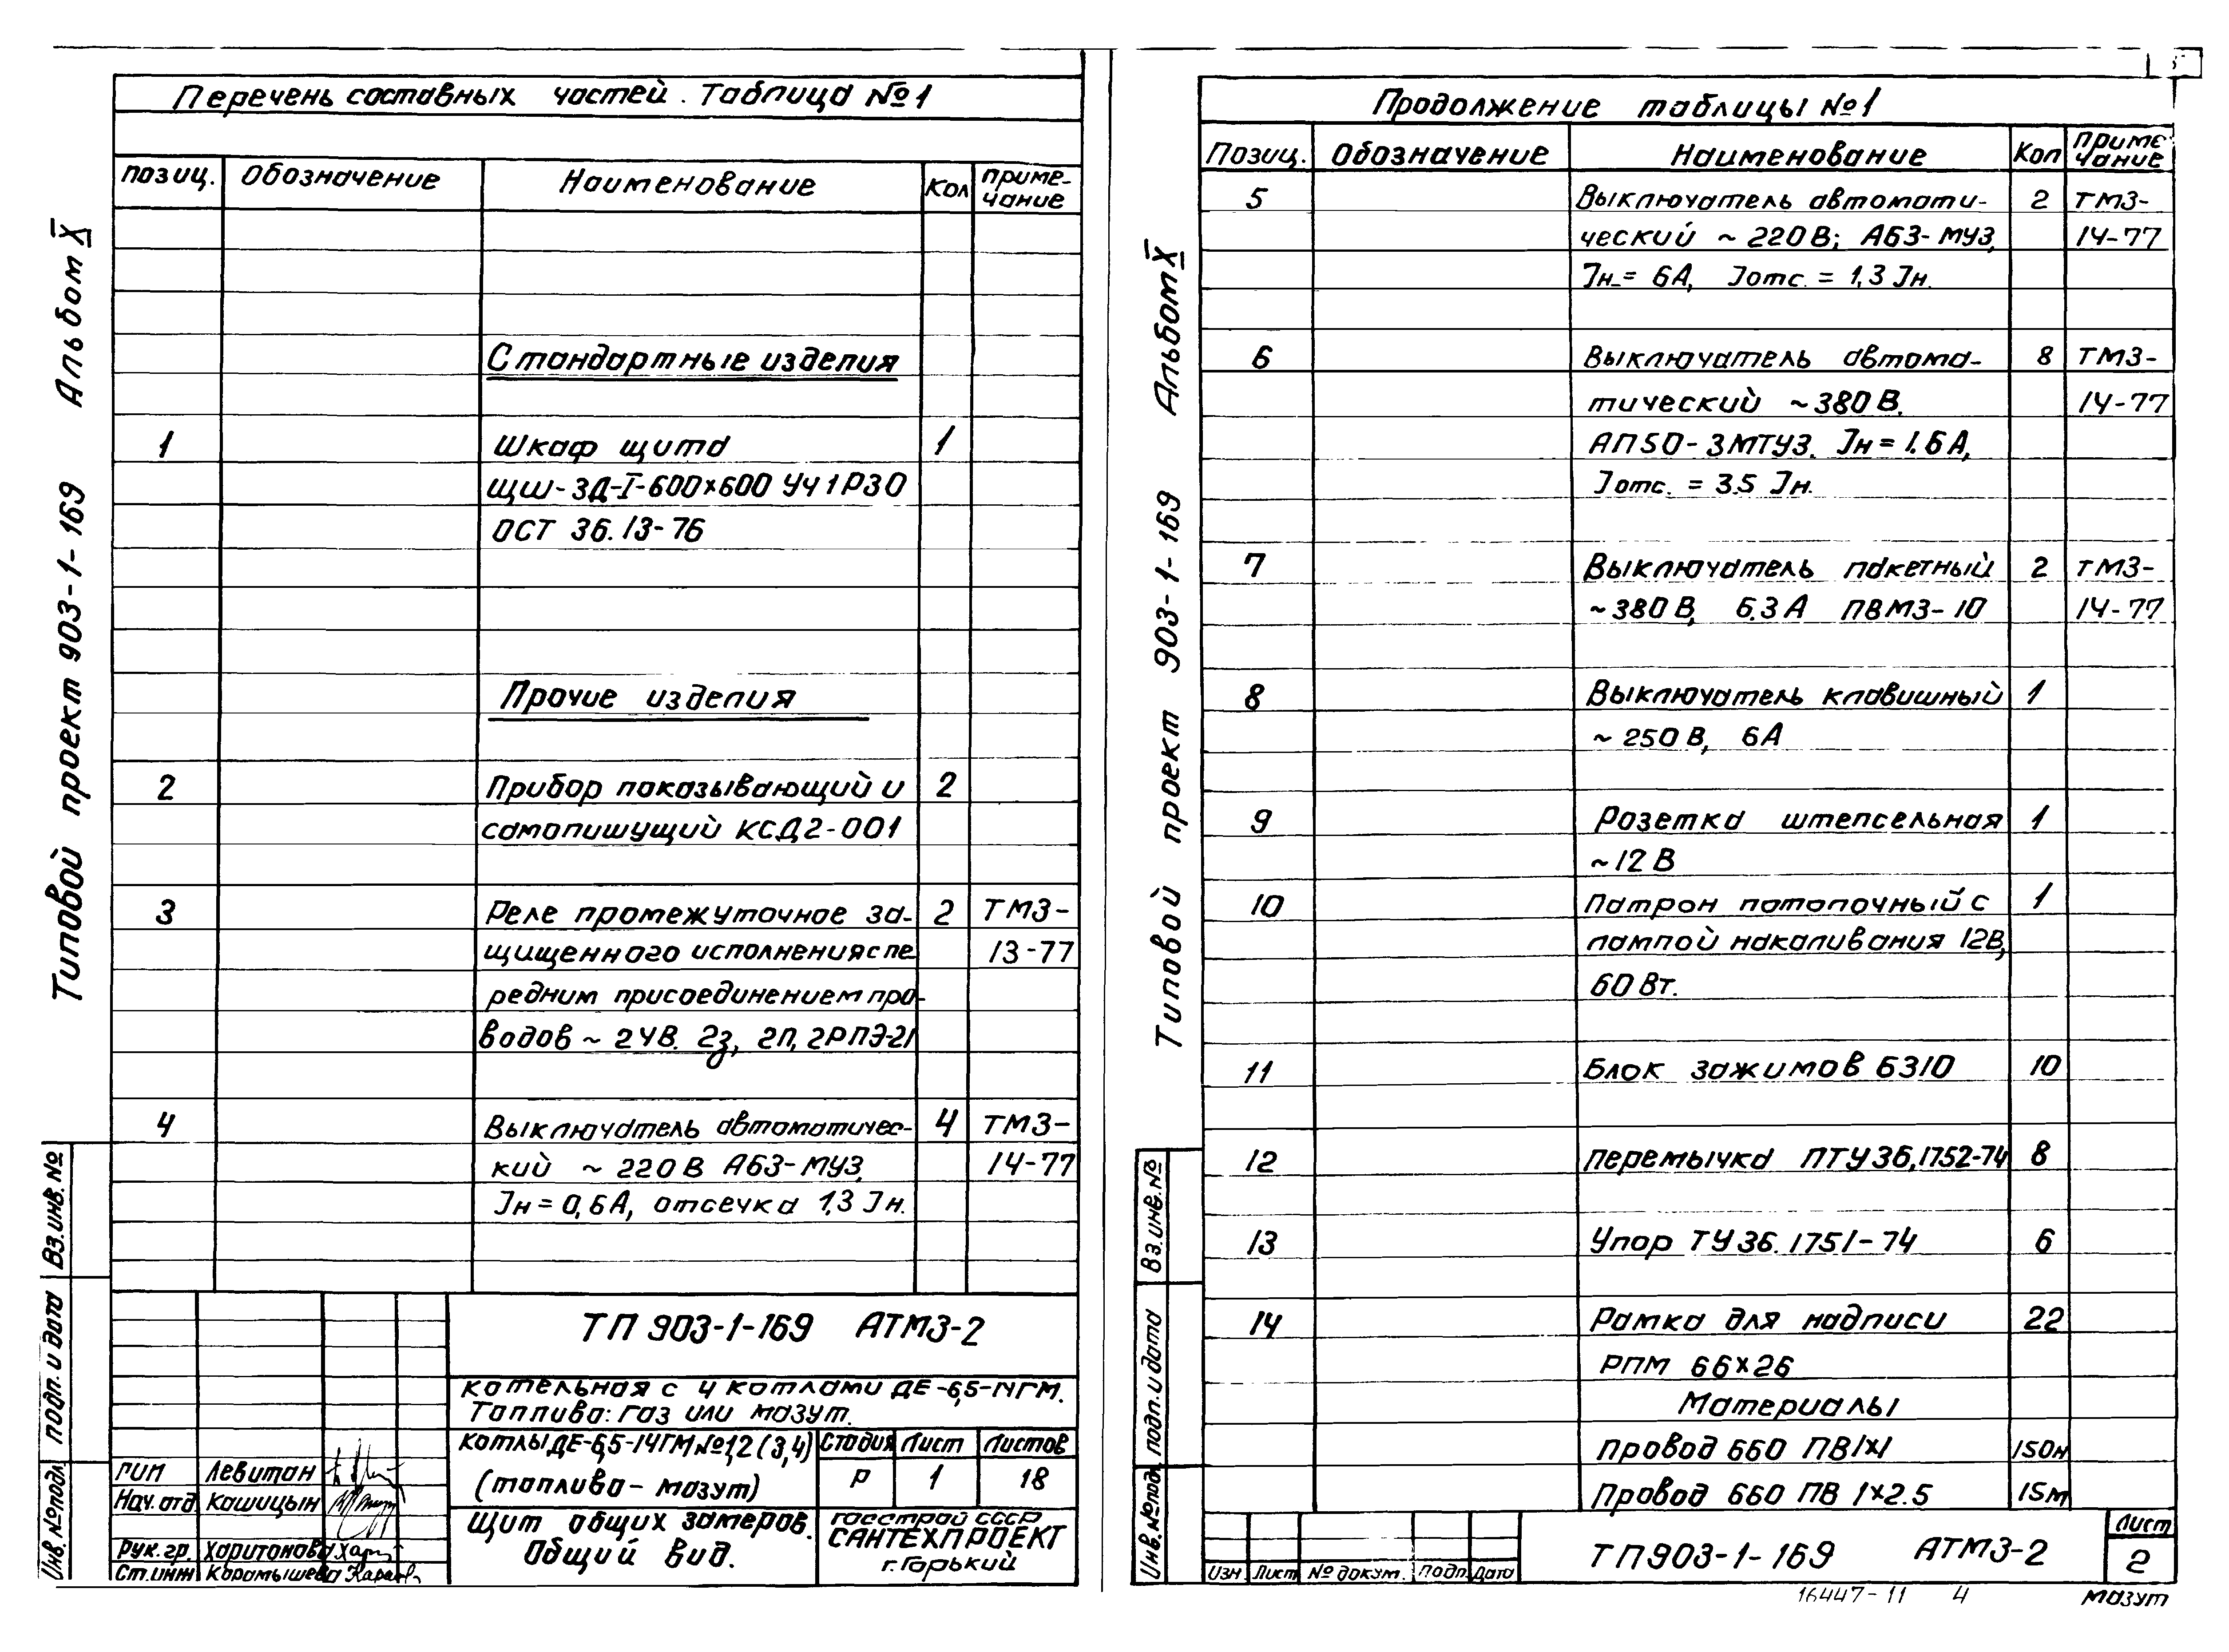 Перечень составных частей. Таблица №1
позиц. Обозначение Наименование Кол приме-
чание
Стандартные изделия
1 Шкаф щита 1
ЩШ-3Д-I-600×600 УЧ1Р30
ОСТ 36.13-76
Прочие изделия
2 Прибор показывающий и 2
самопишущий КСД2-001
3 Реле промежуточное за- 2 ТМ3-
щищенного исполнения с пе 13-77
редним присоединением про-
водов ~ 24В. 2з, 2П, 2РПЭ-21
4 Выключатель автоматичес- 4 ТМ3-
кий ~ 220В А63-МУ3, 14-77
Iн = 0,6А, отсечка 1,3 Iн.
ТП 903-1-169 АТМ3-2
котельная с 4 котлами ДЕ-6,5-14ГМ.
Топливо: газ или мазут.
котлы ДЕ-6,5-14ГМ №1,2 (3,4) Стадия Лист Листов
(топливо - мазут) Р 1 18
ГИП Левитан
Нач. отд. Кашицын
Щит общих замеров.
Общий вид.
госстрой СССР
САНТЕХПРОЕКТ
г. Горький
Рук. гр. Харитонова
Ст. инж Карамышева
Типовой проект 903-1-169 Альбом X
Вз.инв.№
подп. и дата
Инв.№подл.
Продолжение таблицы №1
Позиц. Обозначение Наименование Кол Приме-
чание
5 Выключатель автомати- 2 ТМ3-
ческий ~ 220В; А63-МУ3, 14-77
Iн = 6А, Iотс. = 1,3 Iн.
6 Выключатель автома- 8 ТМ3-
тический ~380В. 14-77
АП50-3МТУ3. Iн = 1.6А,
Iотс. = 3.5 Iн.
7 Выключатель пакетный 2 ТМ3-
~380В, 6.3А ПВМ3-10 14-77
8 Выключатель клавишный 1
~ 250В, 6А
9 Розетка штепсельная 1
~12В
10 Патрон потолочный с 1
лампой накаливания 12В,
60Вт.
11 Блок зажимов БЗ10 10
12 перемычка ПТУ36,1752-74 8
13 Упор ТУ36.1751-74 6
14 Рамка для надписи 22
РПМ 66×26
Материалы
Провод 660 ПВ1×1 150м
Провод 660 ПВ 1×2.5 15м
ТП903-1-169 АТМ3-2
Лист
2
Изн Лист № докум. Подп. Дата
Типовой проект 903-1-169 Альбом X
Вз.инв.№
подп. и дата
Инв.№подл.
16447-11 4 мазут